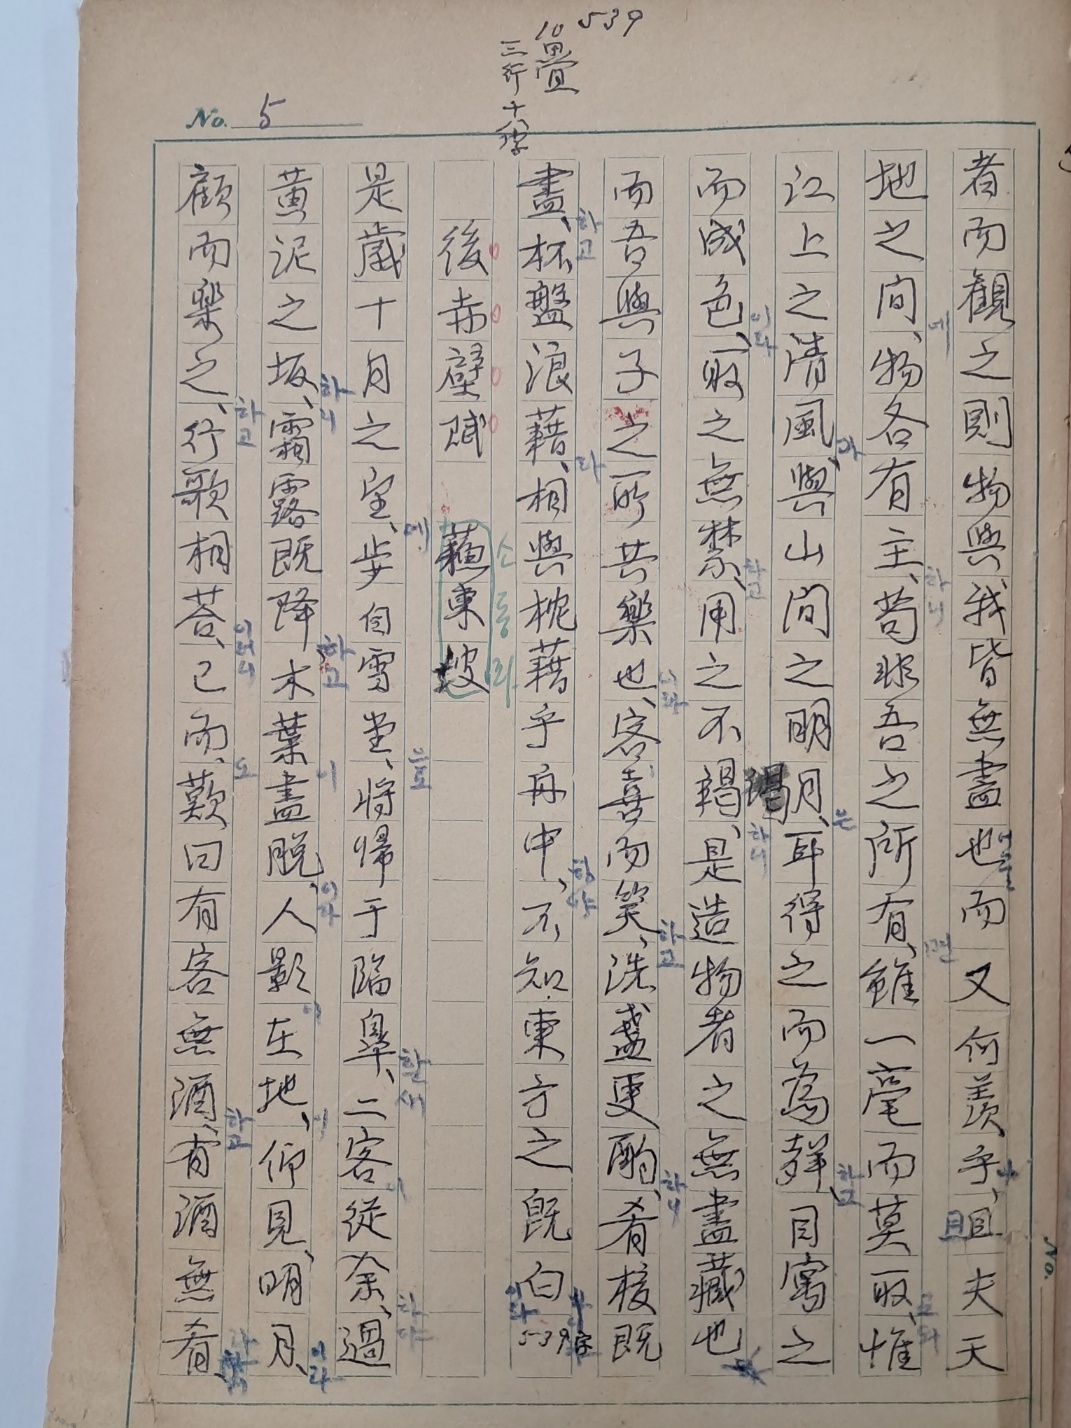 10 539
疊
三行
十八字
No. 5
者而觀之則物與我皆無盡也而又何羨乎、且夫天
地之間、物各有主、苟非吾之所有、雖一毫而莫取、惟
江上之清風、與山間之明月、耳得之而為聲、目寓之
而成色、取之無禁、用之不竭、是造物者之無盡藏也
而吾與子之所共樂也、客喜而笑、洗盞更酌、肴核既
盡、杯盤浪藉、相與枕藉乎舟中、不知東方之既白
539字
後赤壁賦 蘇東坡
소동파
是歲十月之望、步自雪堂、將歸于臨皐、二客從余、過
黃泥之坂、霜露既降木葉盡脫、人影在地、仰見、明月、
顧而樂之、行歌相答、已而、歎曰有客無酒、有酒無肴